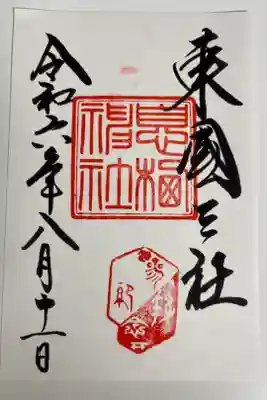 東國三社
息栖
神社
令和六年八月十一日